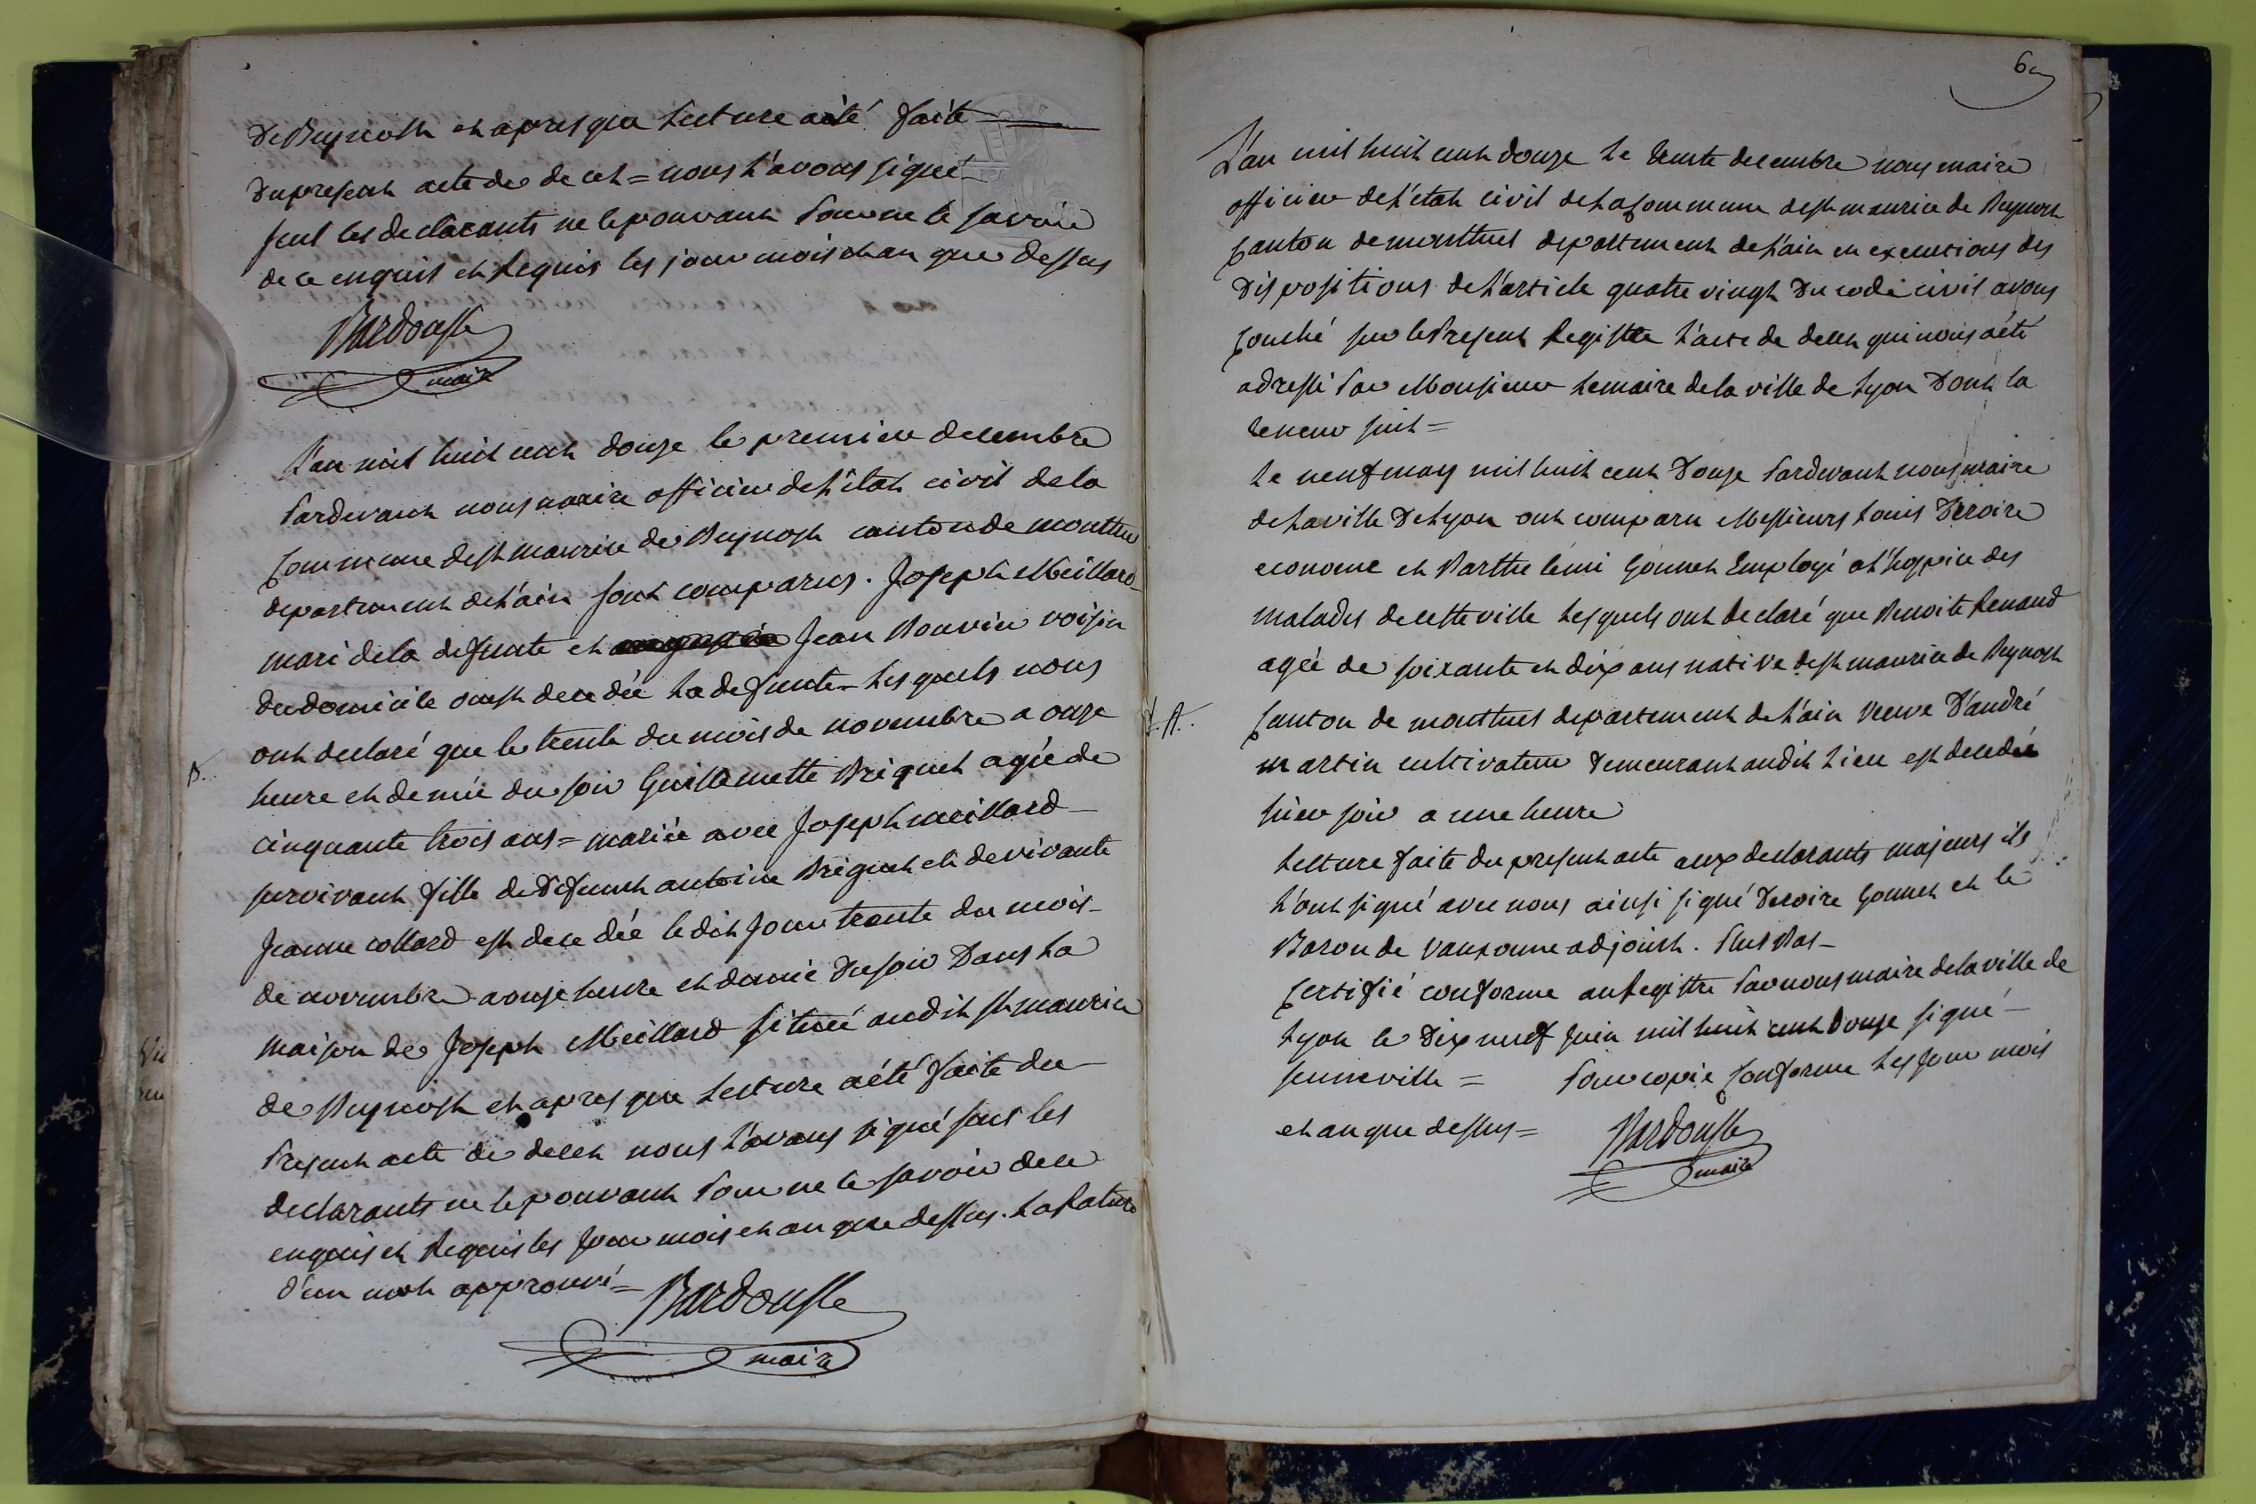 de Beynost et apres que lecture a été faite
du present acte de decet = nous l'avons signé
seul les declarants ne le pouvant pour ne le savoir
de ce enquis et requis les jour mois et an que dessus
Bardousse
maire
L'an mil huit cent douze le premier decembre
pardevant nous maire officier de l'état civil de la
commune de st maurice de Beynost canton de montluel
departement de l'ain sont comparus. Joseph Meillard
mari de la defunte et Jean Bouvier voisin
du domicile ou est decedée la defunte lesquels nous
ont declaré que le trente du mois de novembre a onze
B.
heure et demie du soir Guillemette Briquet agée de
cinquante trois ans = mariée avec Joseph meillard
survivant fille de defunt antoine Briquet et de vivante
Jeanne collard est decedée ledit jour trente du mois
de novembre a onze heure et demie du soir dans la
maison de Joseph Meillard située audit st maurice
de Beynost et apres que lecture a été faite du
present acte de decet nous l'avons signé seul les
declarants ne le pouvant pour ne le savoir de ce
enquis et requis les jour mois et an que dessus. La rature
d'un mot approuvé =
Bardousse
maire
60
L'an mil huit cent douze le trente decembre nous maire
officier de l'etat civil de la commune de st maurice de Beynost
canton de montluel departement de l'ain en execution des
dispositions de l'article quatre vingt du code civil avons
couché sur le present registre l'acte de decet qui nous a été
adressé par Monsieur le maire de la ville de Lyon dont la
teneur suit =
Le neuf may mil huit cent douze pardevant nous maire
de la ville de Lyon ont comparu Messieurs Louis Deroire
econome et Barthelemi Gonnet Employé a l'hospice des
malades de cette ville lesquels ont declaré que Benoite Renaud
agée de soixante et dix ans native de st maurice de Beynost
canton de montluel departement de l'ain veuve d'andré
martin cultivateur demeurant audit lieu est decedée
hier soir a une heure
Lecture faite du present acte aux declarants majeurs ils
l'ont signé avec nous ainsi signé Deroire Gonnet et le
Baron de vauxonne adjoint. Plus Bas
certifié conforme au registre par nous maire de la ville de
Lyon le dix neuf juin mil huit cent douze signé
senneville = pour copie conforme les jour mois
et an que dessus =
Bardousse
maire